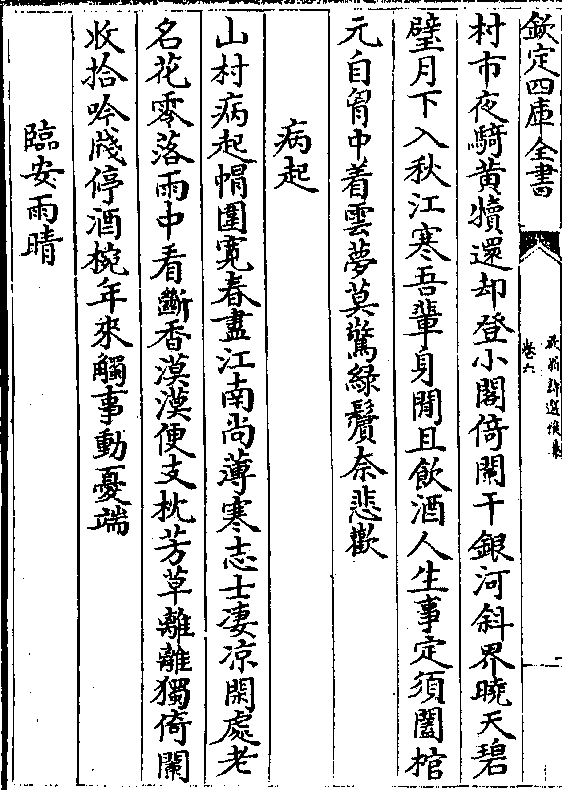 欽定四庫全書
卷六
村市夜騎黃犢還却登小閣倚闌干銀河斜界曉天碧
璧月下入秋江寒吾輩身閒且飲酒人生事定須闔棺
元自胷中着雲夢莫驚綠鬢奈悲歡
病起
山村病起帽圍寛春盡江南尚薄寒志士凄凉閑處老
名花零落雨中看斷香漠漠便支枕芳草離離獨倚闌
收拾吟牋停酒椀年來觸事動憂端
臨安雨晴